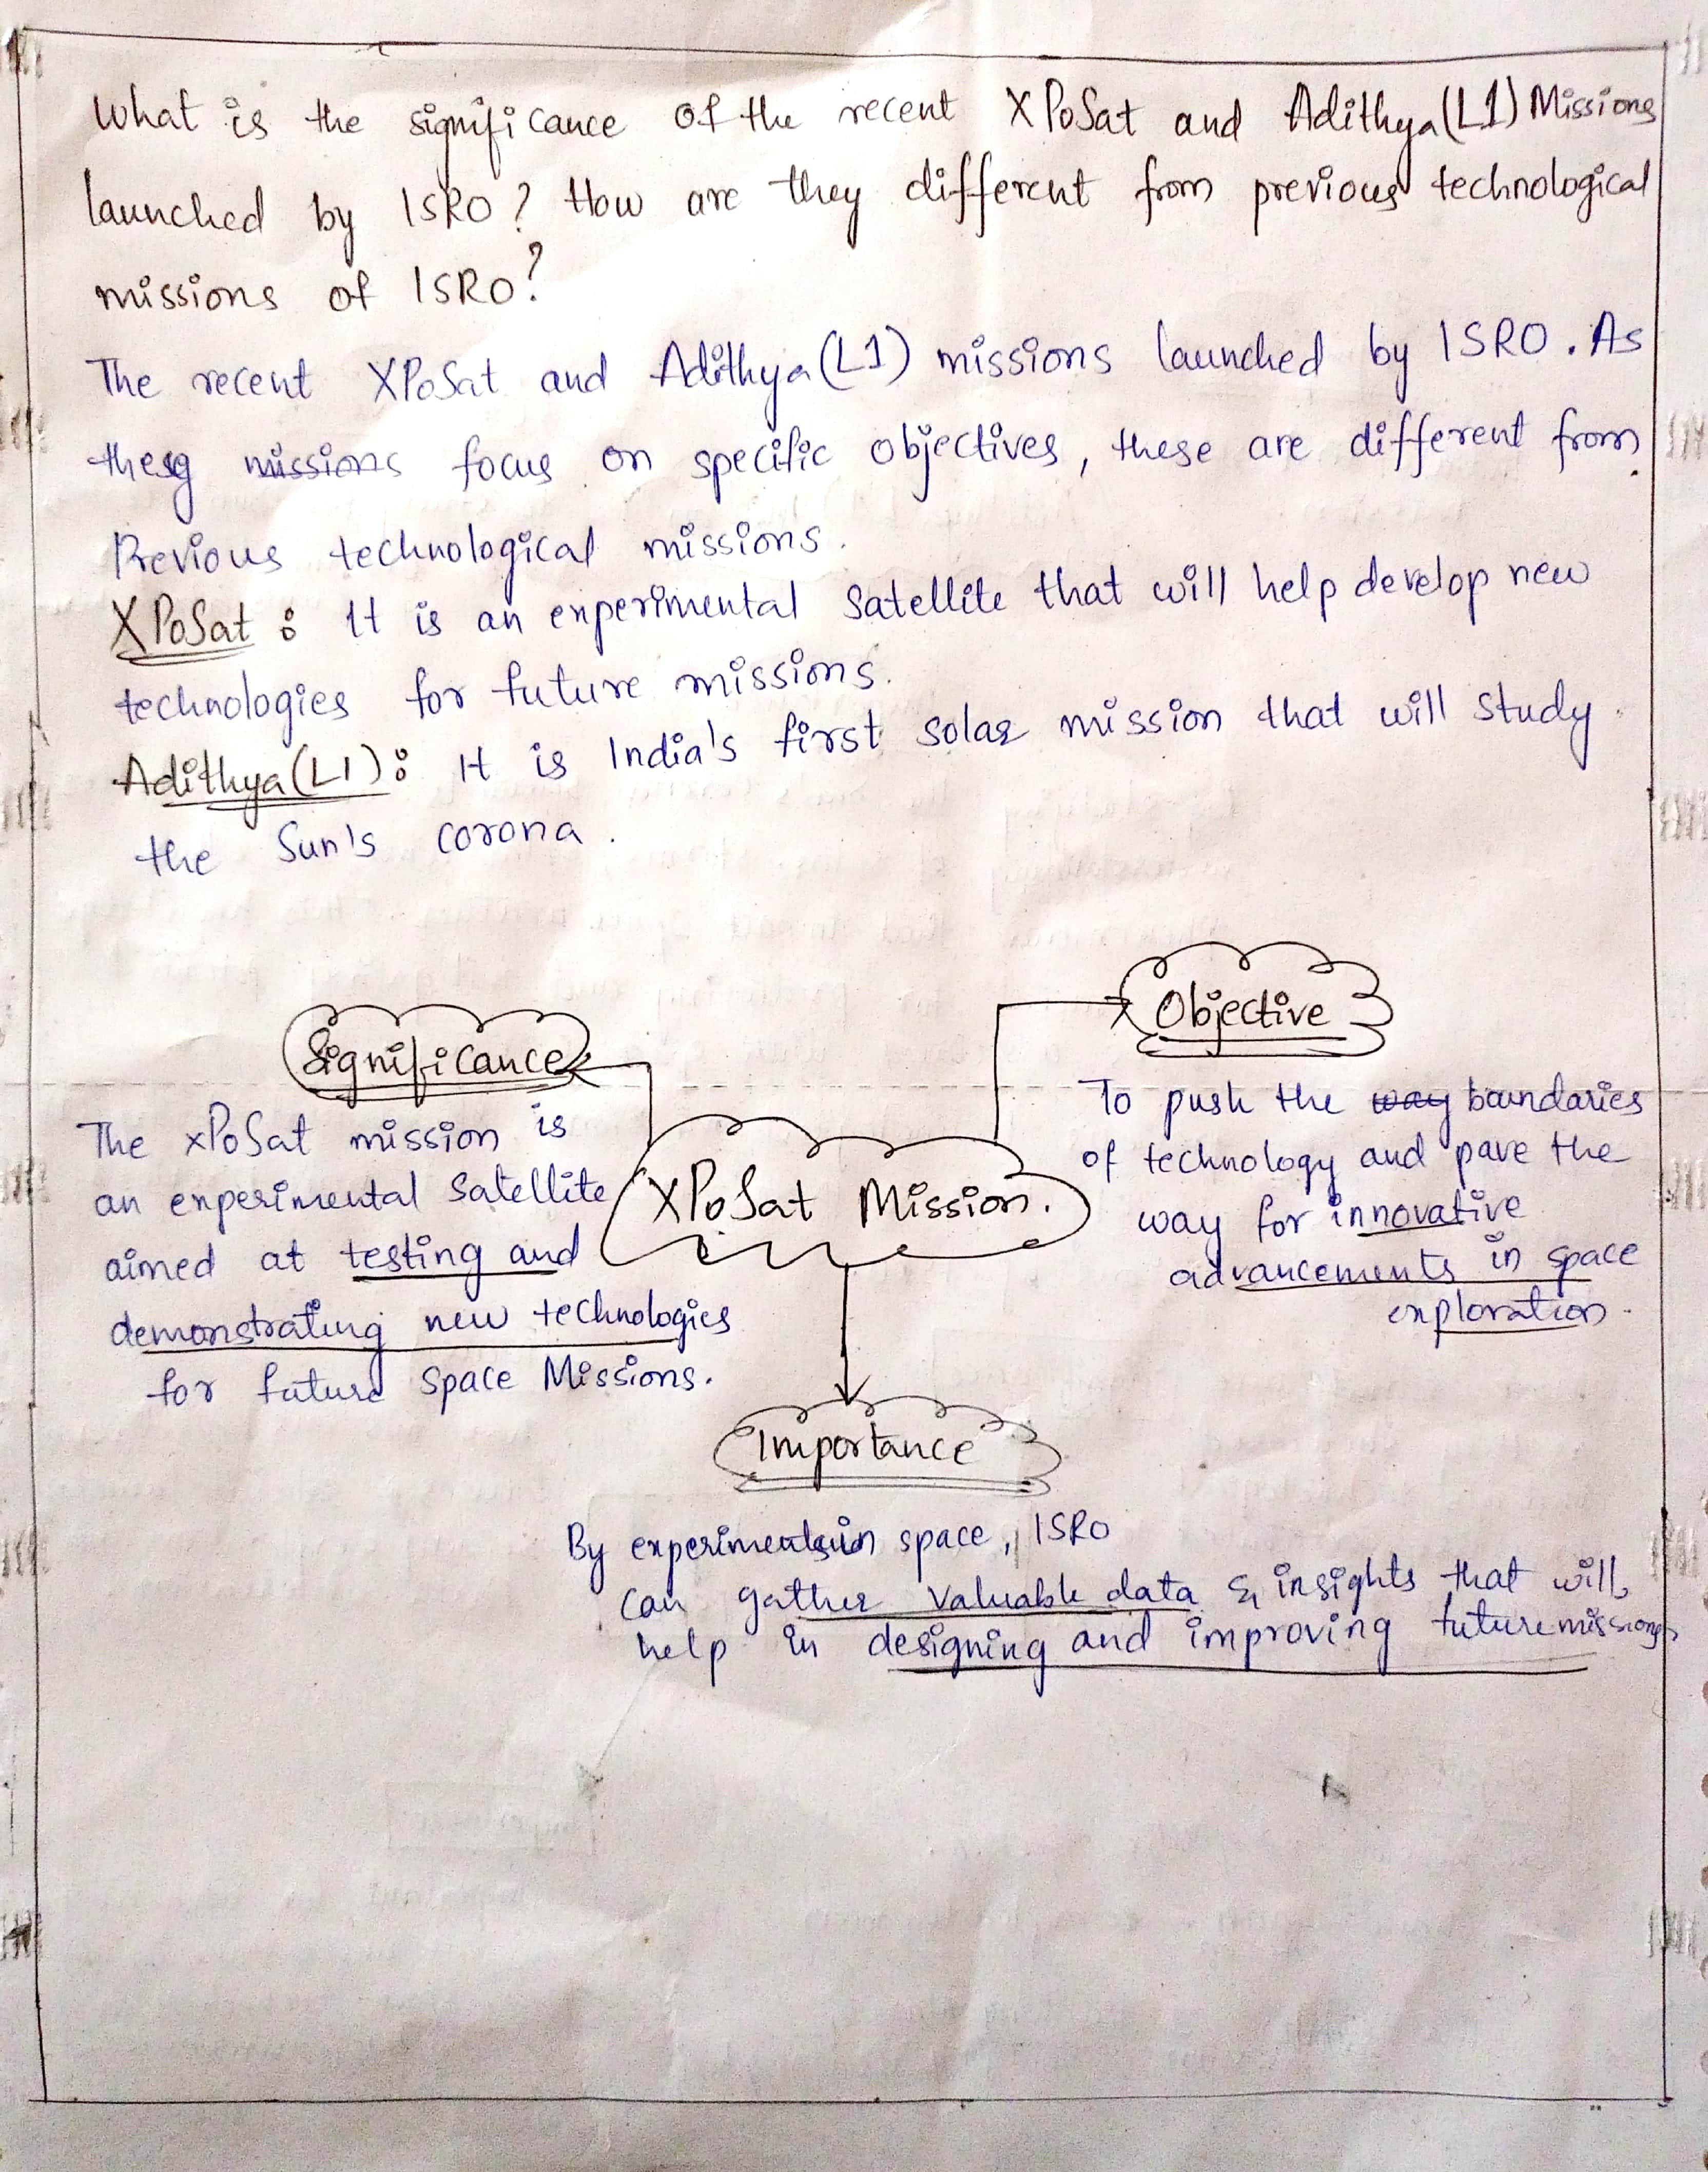 What is the significance of the recent XPoSat and Adithya(L1) Missions
launched by ISRO? How are they different from previous technological
missions of ISRO?
The recent XPoSat and Adithya(L1) missions launched by ISRO. As
these missions focus on specific objectives, these are different from
Previous technological missions.
XPoSat : It is an experimental satellite that will help develop new
technologies for future missions.
Adithya(L1): It is India's first solar mission that will study
the Sun's corona.
Objective
Significance
To push the way boundaries
of technology and pave the
way for innovative
advancements in space
exploration.
The xPoSat mission is
an experimental satellite
aimed at testing and
demonstrating new technologies
for future space Missions.
XPoSat Mission.
Importance
By experiments in space, ISRO
can gather valuable data & insights that will
help in designing and improving future missions